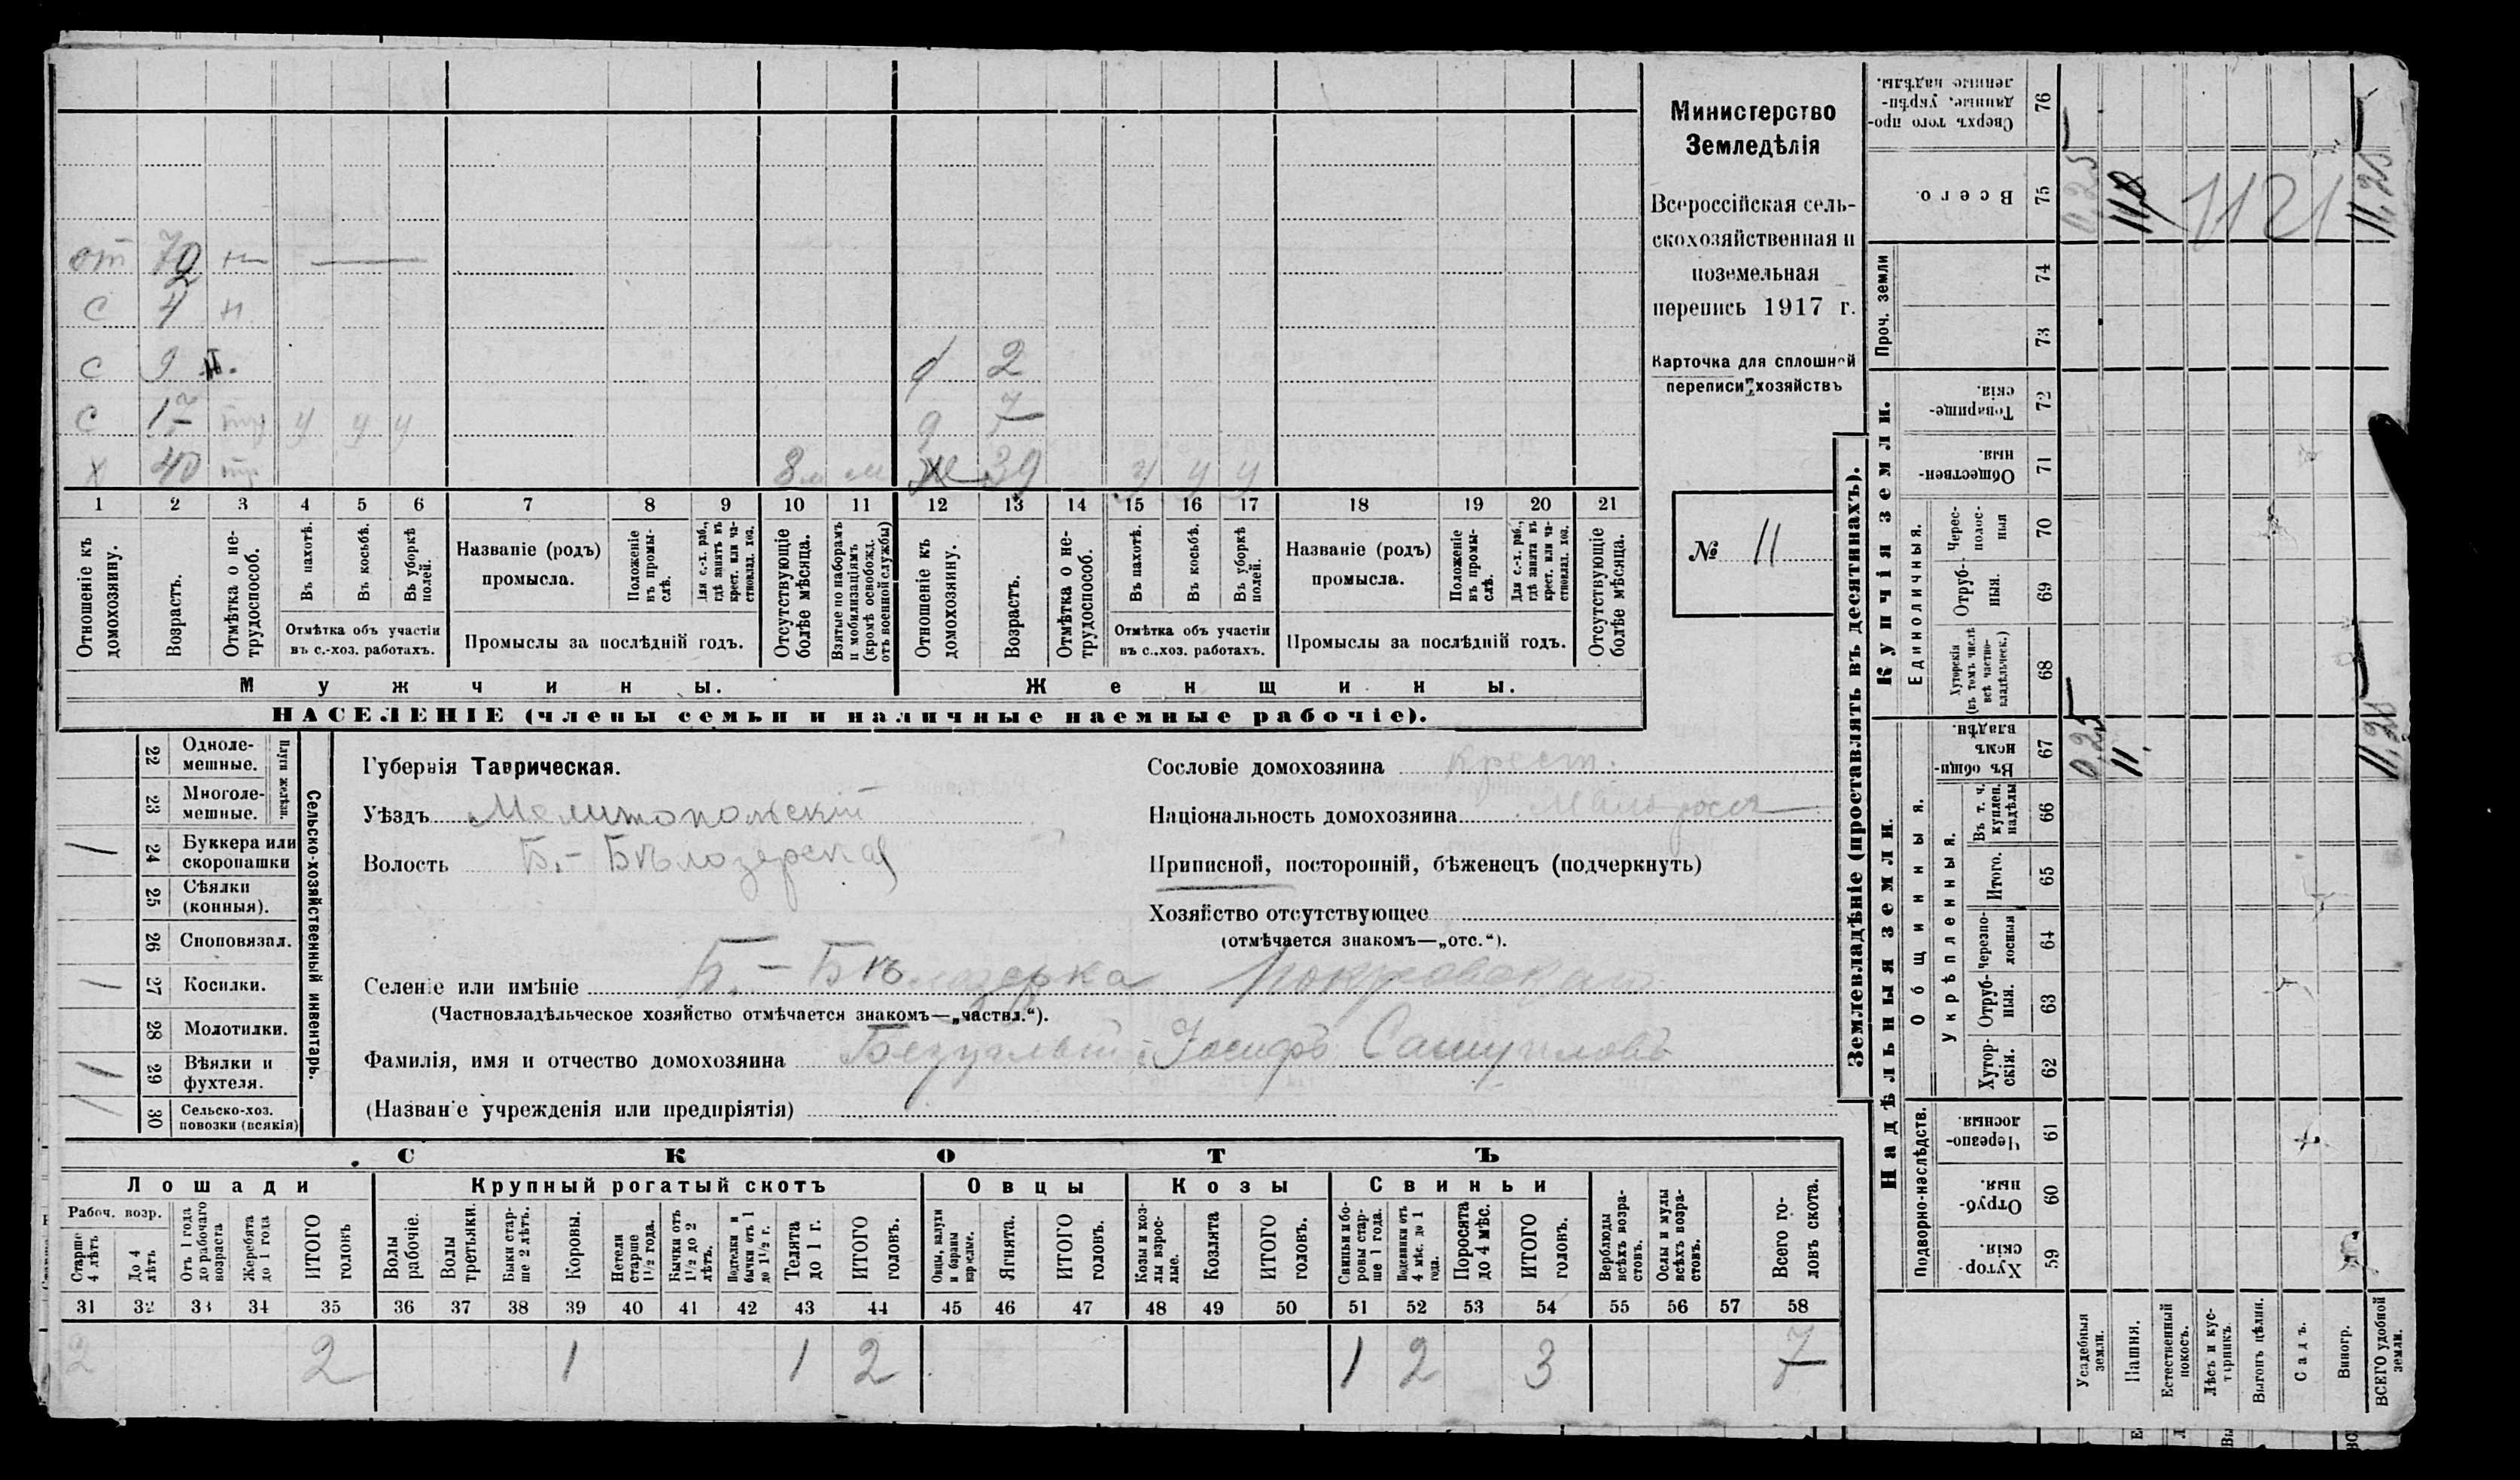 Министерство
Земледѣлія
Всероссійская сель-
скохозяйственная и
поземельная
перепись 1917 г.
Карточка для сплошной
переписи хозяйствъ
№ 11
от 72 н
с 4 н.
с 9 н.
с 17 тр у у у
х 40 тр 8 м м
2
д 7
ж 39 у у у
1 2 3 4 5 6 7 8 9 10 11 12 13 14 15 16 17 18 19 20 21
Отношеніе къ домохозяину.
Возрастъ.
Отмѣтка о не-трудоспособ.
Въ пахотѣ.
Въ косьбѣ.
Въ уборкѣ полей.
Отмѣтка объ участіи
въ с.-хоз. работахъ.
Названіе (родъ)
промысла.
Положеніе въ промы-слѣ.
Для с.-х. раб., гдѣ занятъ въ крест. или ча-стновлад. хоз.
Промыслы за послѣдній годъ.
Отсутствующіе болѣе мѣсяца.
Взятые по наборамъ и мобилизаціямъ (кромѣ освобожд. отъ военной службы)
Отношеніе къ домохозяину.
Возрастъ.
Отмѣтка о не-трудоспособ.
Въ пахотѣ.
Въ косьбѣ.
Въ уборкѣ полей.
Отмѣтка объ участіи
въ с..хоз. работахъ.
Названіе (родъ)
промысла.
Положеніе въ промы-слѣ.
Для с.-х. раб., гдѣ занята въ крест. или ча-стновлад. хоз.
Промыслы за послѣдній годъ.
Отсутствующіе болѣе мѣсяца.
Мужчины.
Женщины.
НАСЕЛЕНІЕ (члены семьи и наличные наемные рабочіе).
Сельско-хозяйственный инвентарь.
Плуги желѣзн.
22 Одноле-мешные.
23 Многоле-мешные.
/ 24 Буккера или скоропашки
25 Сѣялки (конныя).
26 Сноповязал.
/ 27 Косилки.
28 Молотилки.
/ 29 Вѣялки и фухтеля.
/ 30 Сельско-хоз. повозки (всякія)
Губернія Таврическая.
Уѣздъ Мелитопольскій
Волость Б.-Бѣлозерская
Сословіе домохозяина крест.
Національность домохозяина малоросс
Приписной, посторонній, бѣженецъ (подчеркнуть)
Хозяйство отсутствующее
(отмѣчается знакомъ—„отс.“).
Селеніе или имѣніе Б.-Бѣлозерка
(Частновладѣльческое хозяйство отмѣчается знакомъ—„частвл.“).
Фамилія, имя и отчество домохозяина Іосифъ Самуиловъ
(Названіе учрежденія или предпріятія)
СКОТЪ
Лошади
Крупный рогатый скотъ
Овцы
Козы
Свиньи
Рабоч. возр.
Старше 4 лѣтъ
До 4 лѣтъ
Отъ 1 года до рабочаго возраста
Жеребята до 1 года
ИТОГО головъ
Волы рабочіе.
Волы третьяки.
Быки стар-ше 2 лѣтъ.
Коровы.
Нетели старше 1½ года.
Бычки отъ 1½ до 2 лѣтъ.
Подтелки и бычки отъ 1 до 1½ г.
Телята до 1 г.
ИТОГО головъ.
Овцы, валухи и бараны взрослые.
Ягнята.
ИТОГО головъ.
Козы и коз-лы взрос-лые.
Козлята
ИТОГО головъ.
Свиньи и бо-ровы стар-ше 1 года.
Подсвинки отъ 4 мѣс. до 1 года.
Поросята до 4 мѣс.
ИТОГО головъ.
Верблюды всѣхъ возра-стовъ.
Ослы и мулы всѣхъ возра-стовъ.
Всего го-ловъ скота.
31 32 33 34 35 36 37 38 39 40 41 42 43 44 45 46 47 48 49 50 51 52 53 54 55 56 57 58
2 2 1 1 2 1 2 3 7
Землевладѣніе (проставлять въ десятинахъ).
Купчія земли.
Надѣльныя земли.
Сверхъ того про-данные, укрѣп-ленные надѣлы. 76
Всего. 75
Проч. земли
74
73
Товарище-скія. 72
Обществен-ныя. 71
Единоличныя.
Черес-полос-ныя 70
Отруб-ныя. 69
Хуторскія (въ томъ числѣ всѣ частно-владѣльческ.) 68
Общинныя.
Въ общи-номъ владѣн. 67
Укрѣпленныя.
Въ т. ч. куплен. надѣлы 66
Итого. 65
Черезпо-лосныя 64
Отруб-ныя. 63
Хутор-скія. 62
Подворно-наслѣдств.
Черезпо-лосныя 61
Отруб-ныя. 60
Хутор-скія. 59
Усадебныя земли.
Пашня.
Естественный покосъ.
Лѣсъ и кус-тарникъ.
Выгонъ цѣлин.
Садъ.
Виногр.
ВСЕГО удобной земли.
0,25
11,0
1121
11,25
0,25
11.
11,25